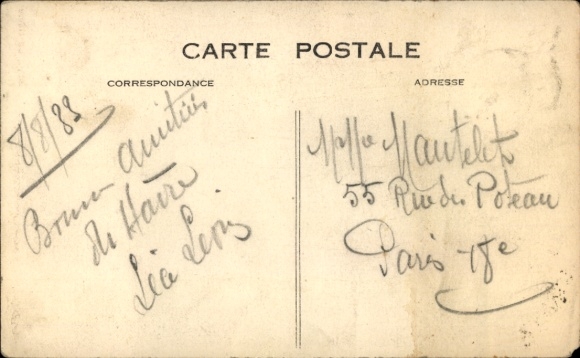 CARTE POSTALE
CORRESPONDANCE
ADRESSE
8/8/33
Bonnes Amitiés
du Havre
Léa Leris
Mlle Mautelet
55 Rue du Poteau
Paris 18e